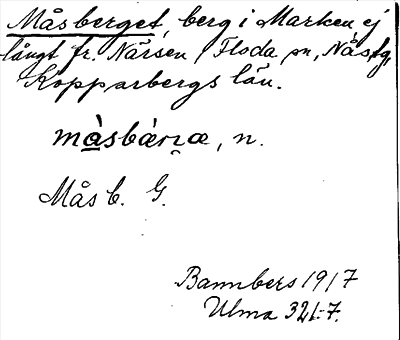 Måsberget, berg i Marken, ej
långt fr. Närsen, Floda sn, Nås tg,
Kopparbergs län.
màsbǽrɿæ, n.
Mås b. G.
Bannbers 1917
Ulma 321:7.